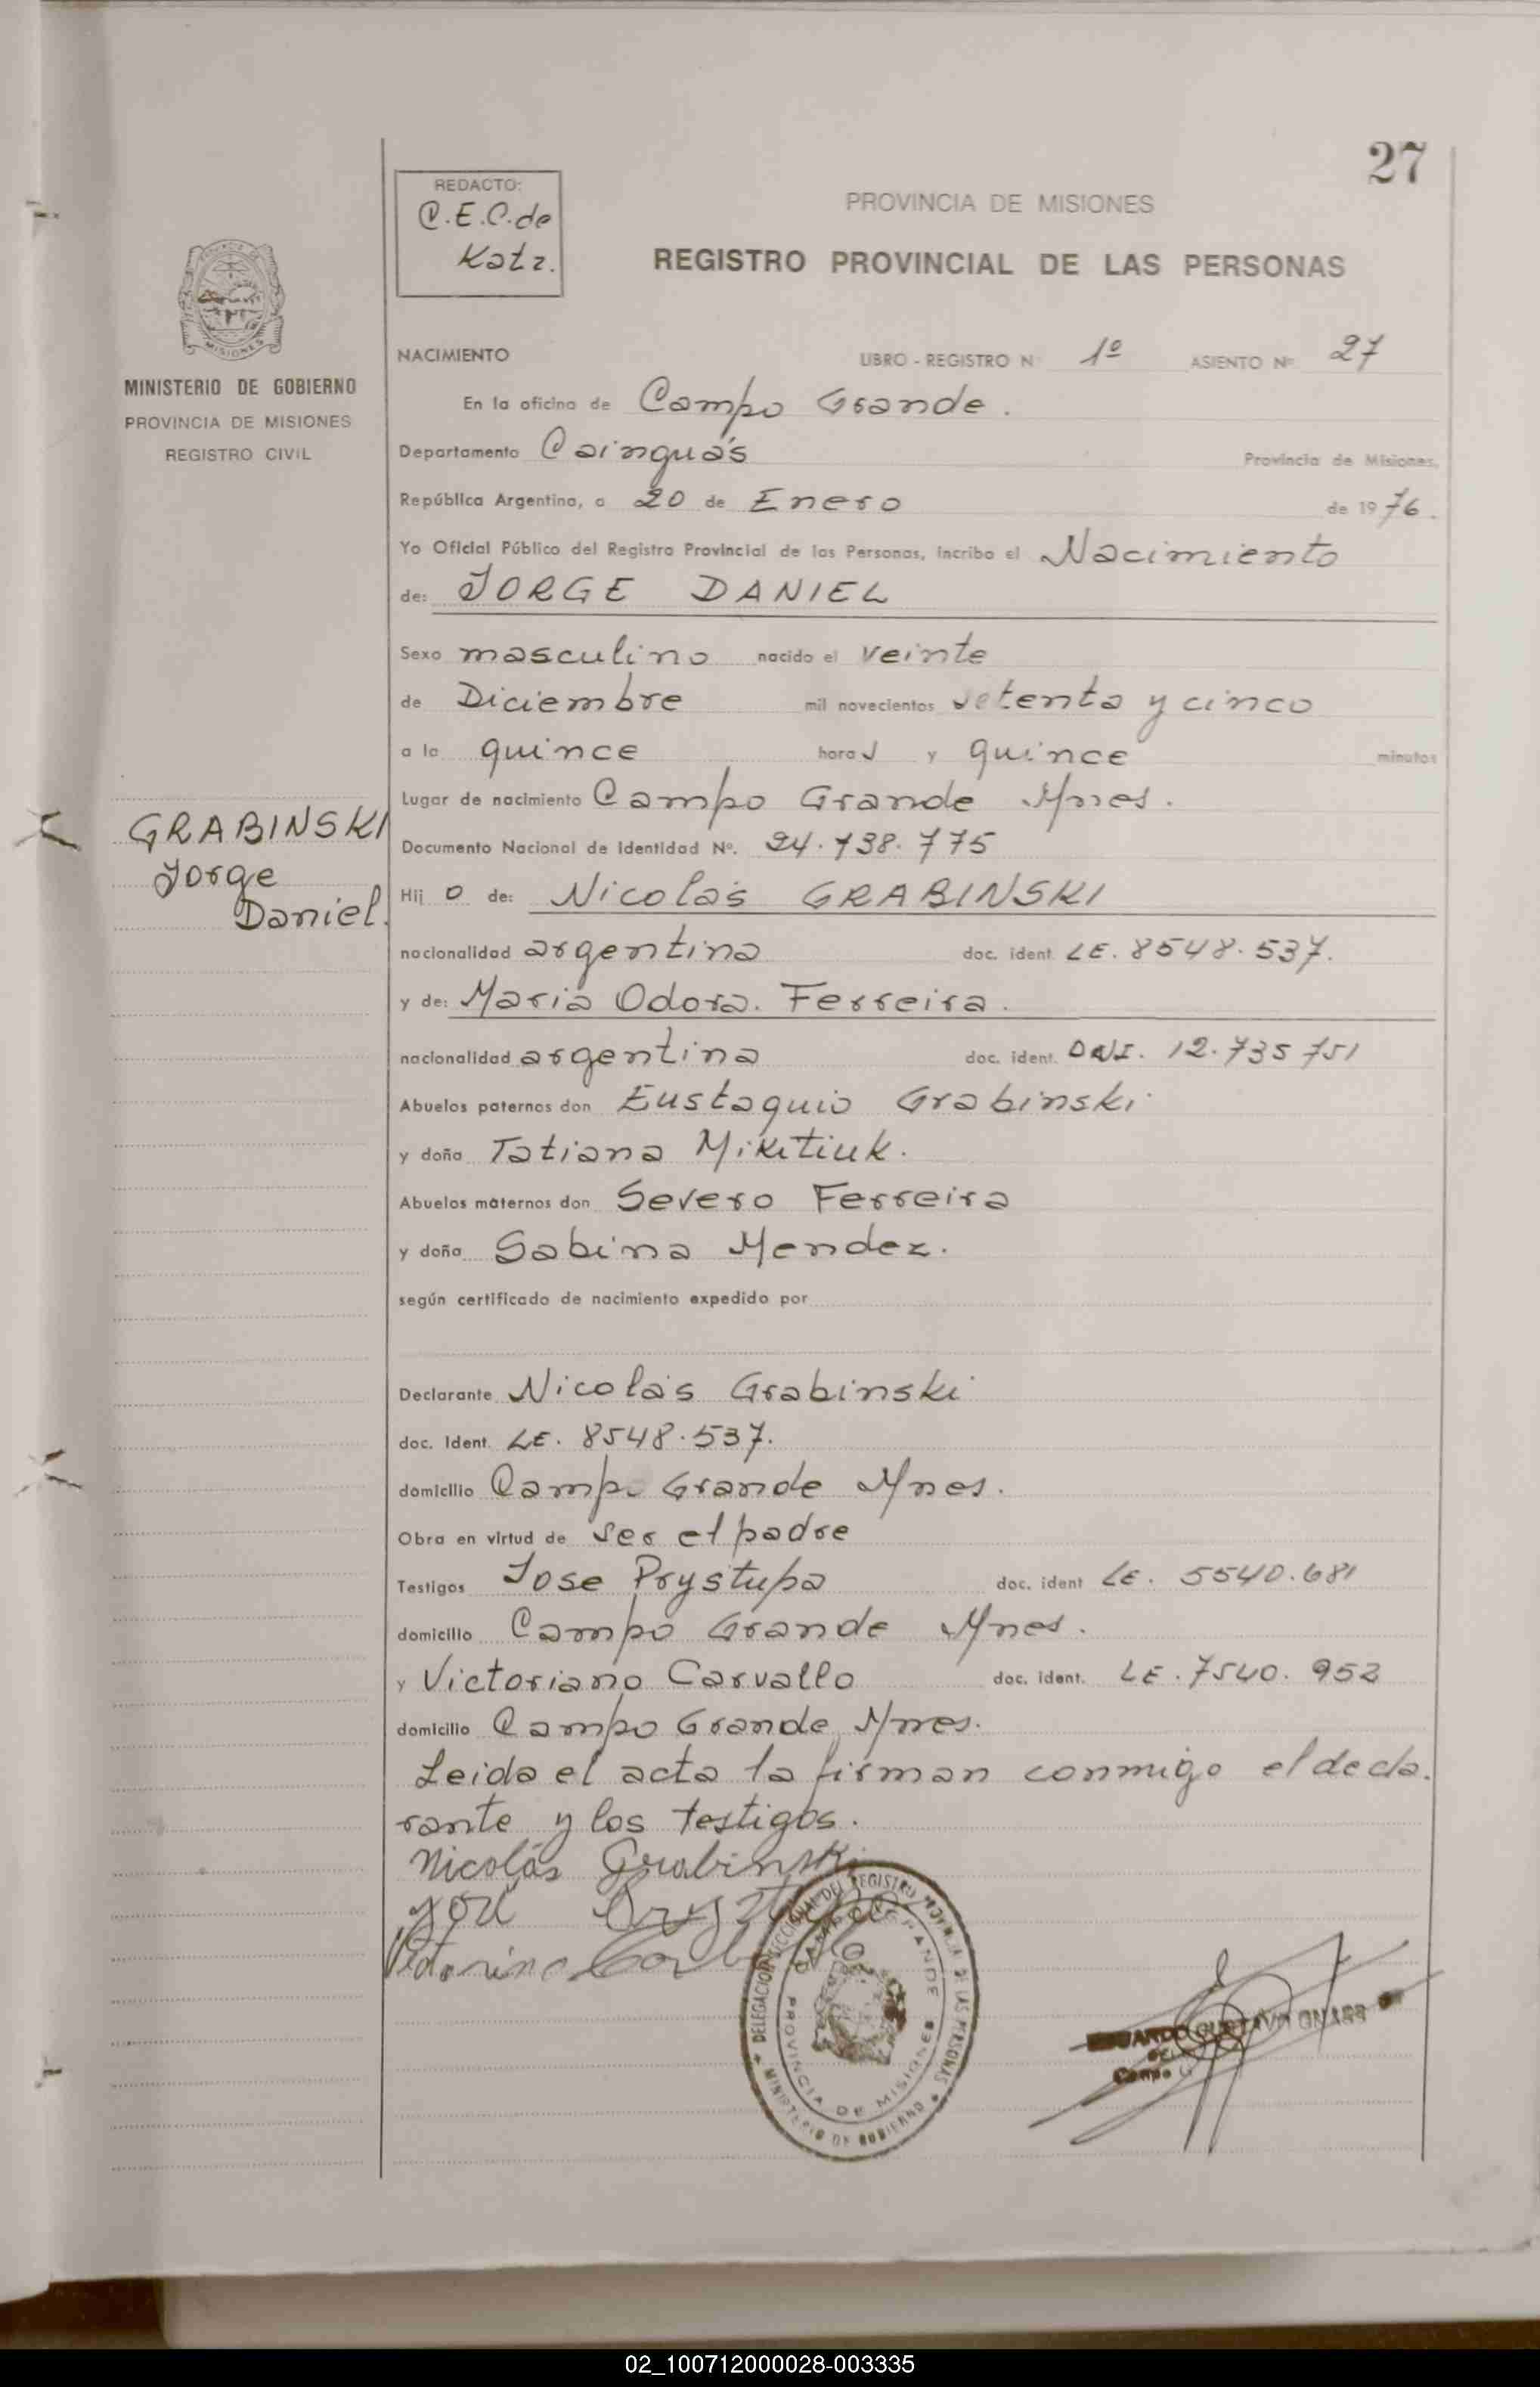 27
REDACTO:
C.E.C. de
Katz.
PROVINCIA DE MISIONES
REGISTRO PROVINCIAL DE LAS PERSONAS
MISIONES
MINISTERIO DE GOBIERNO
PROVINCIA DE MISIONES
REGISTRO CIVIL
NACIMIENTO LIBRO - REGISTRO N 1º ASIENTO Nº 27
En la oficina de Campo Grande.
Departamento Cainguás Provincia de Misiones,
República Argentina, a 20 de Enero de 1976.
Yo Oficial Público del Registro Provincial de las Personas, incribo el Nacimiento
de: JORGE DANIEL
Sexo masculino nacido el veinte
de Diciembre mil novecientos setenta y cinco
a la quince horas y quince minutos
Lugar de nacimiento Campo Grande Mnes.
GRABINSKI
Jorge
Daniel.
Documento Nacional de Identidad Nº. 24.738.775
Hijo de: Nicolás GRABINSKI
nacionalidad argentina doc. ident. LE. 8548.537.
y de: Maria Odora. Ferreira.
nacionalidad argentina doc. ident. DNI. 12.735 751
Abuelos paternos don Eustaquio Grabinski
y doña Tatiana Mikitiuk.
Abuelos maternos don Severo Ferreira
y doña Sabina Mendez.
según certificado de nacimiento expedido por
Declarante Nicolás Grabinski
doc. Ident. LE. 8548.537.
domicilio Campo Grande Mnes.
Obra en virtud de ser el padre
Testigos Jose Prystupa doc. ident LE. 5540.681
domicilio Campo Grande Mnes.
y Victoriano Carvallo doc. ident. LE. 7540. 952
domicilio Campo Grande Mnes.
Leida el acta la firman conmigo el decla.
rante y los testigos.
Nicolás Grabinski
DELEGACION SECCIONAL DEL REGISTRO PROVINCIAL DE LAS PERSONAS
MINISTERIO DE GOBIERNO
CAMPO GRANDE
PROVINCIA DE MISIONES
GUSTAVO
Campo G
02_100712000028-003335